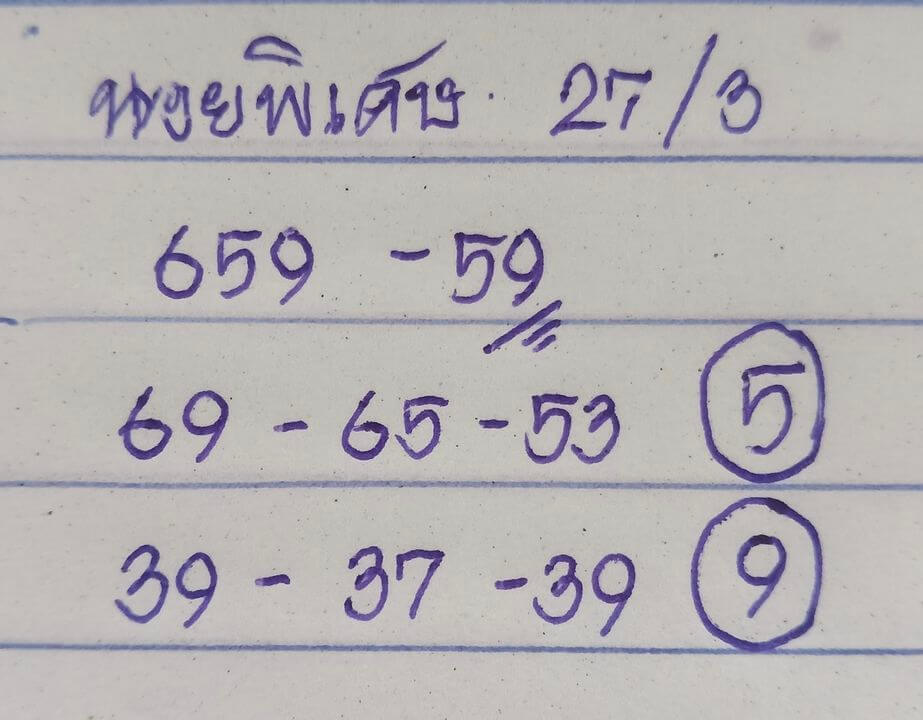 หวยพิเศษ. 27/3
659 - 59
69 - 65 - 53 5
39 - 37 - 39 9